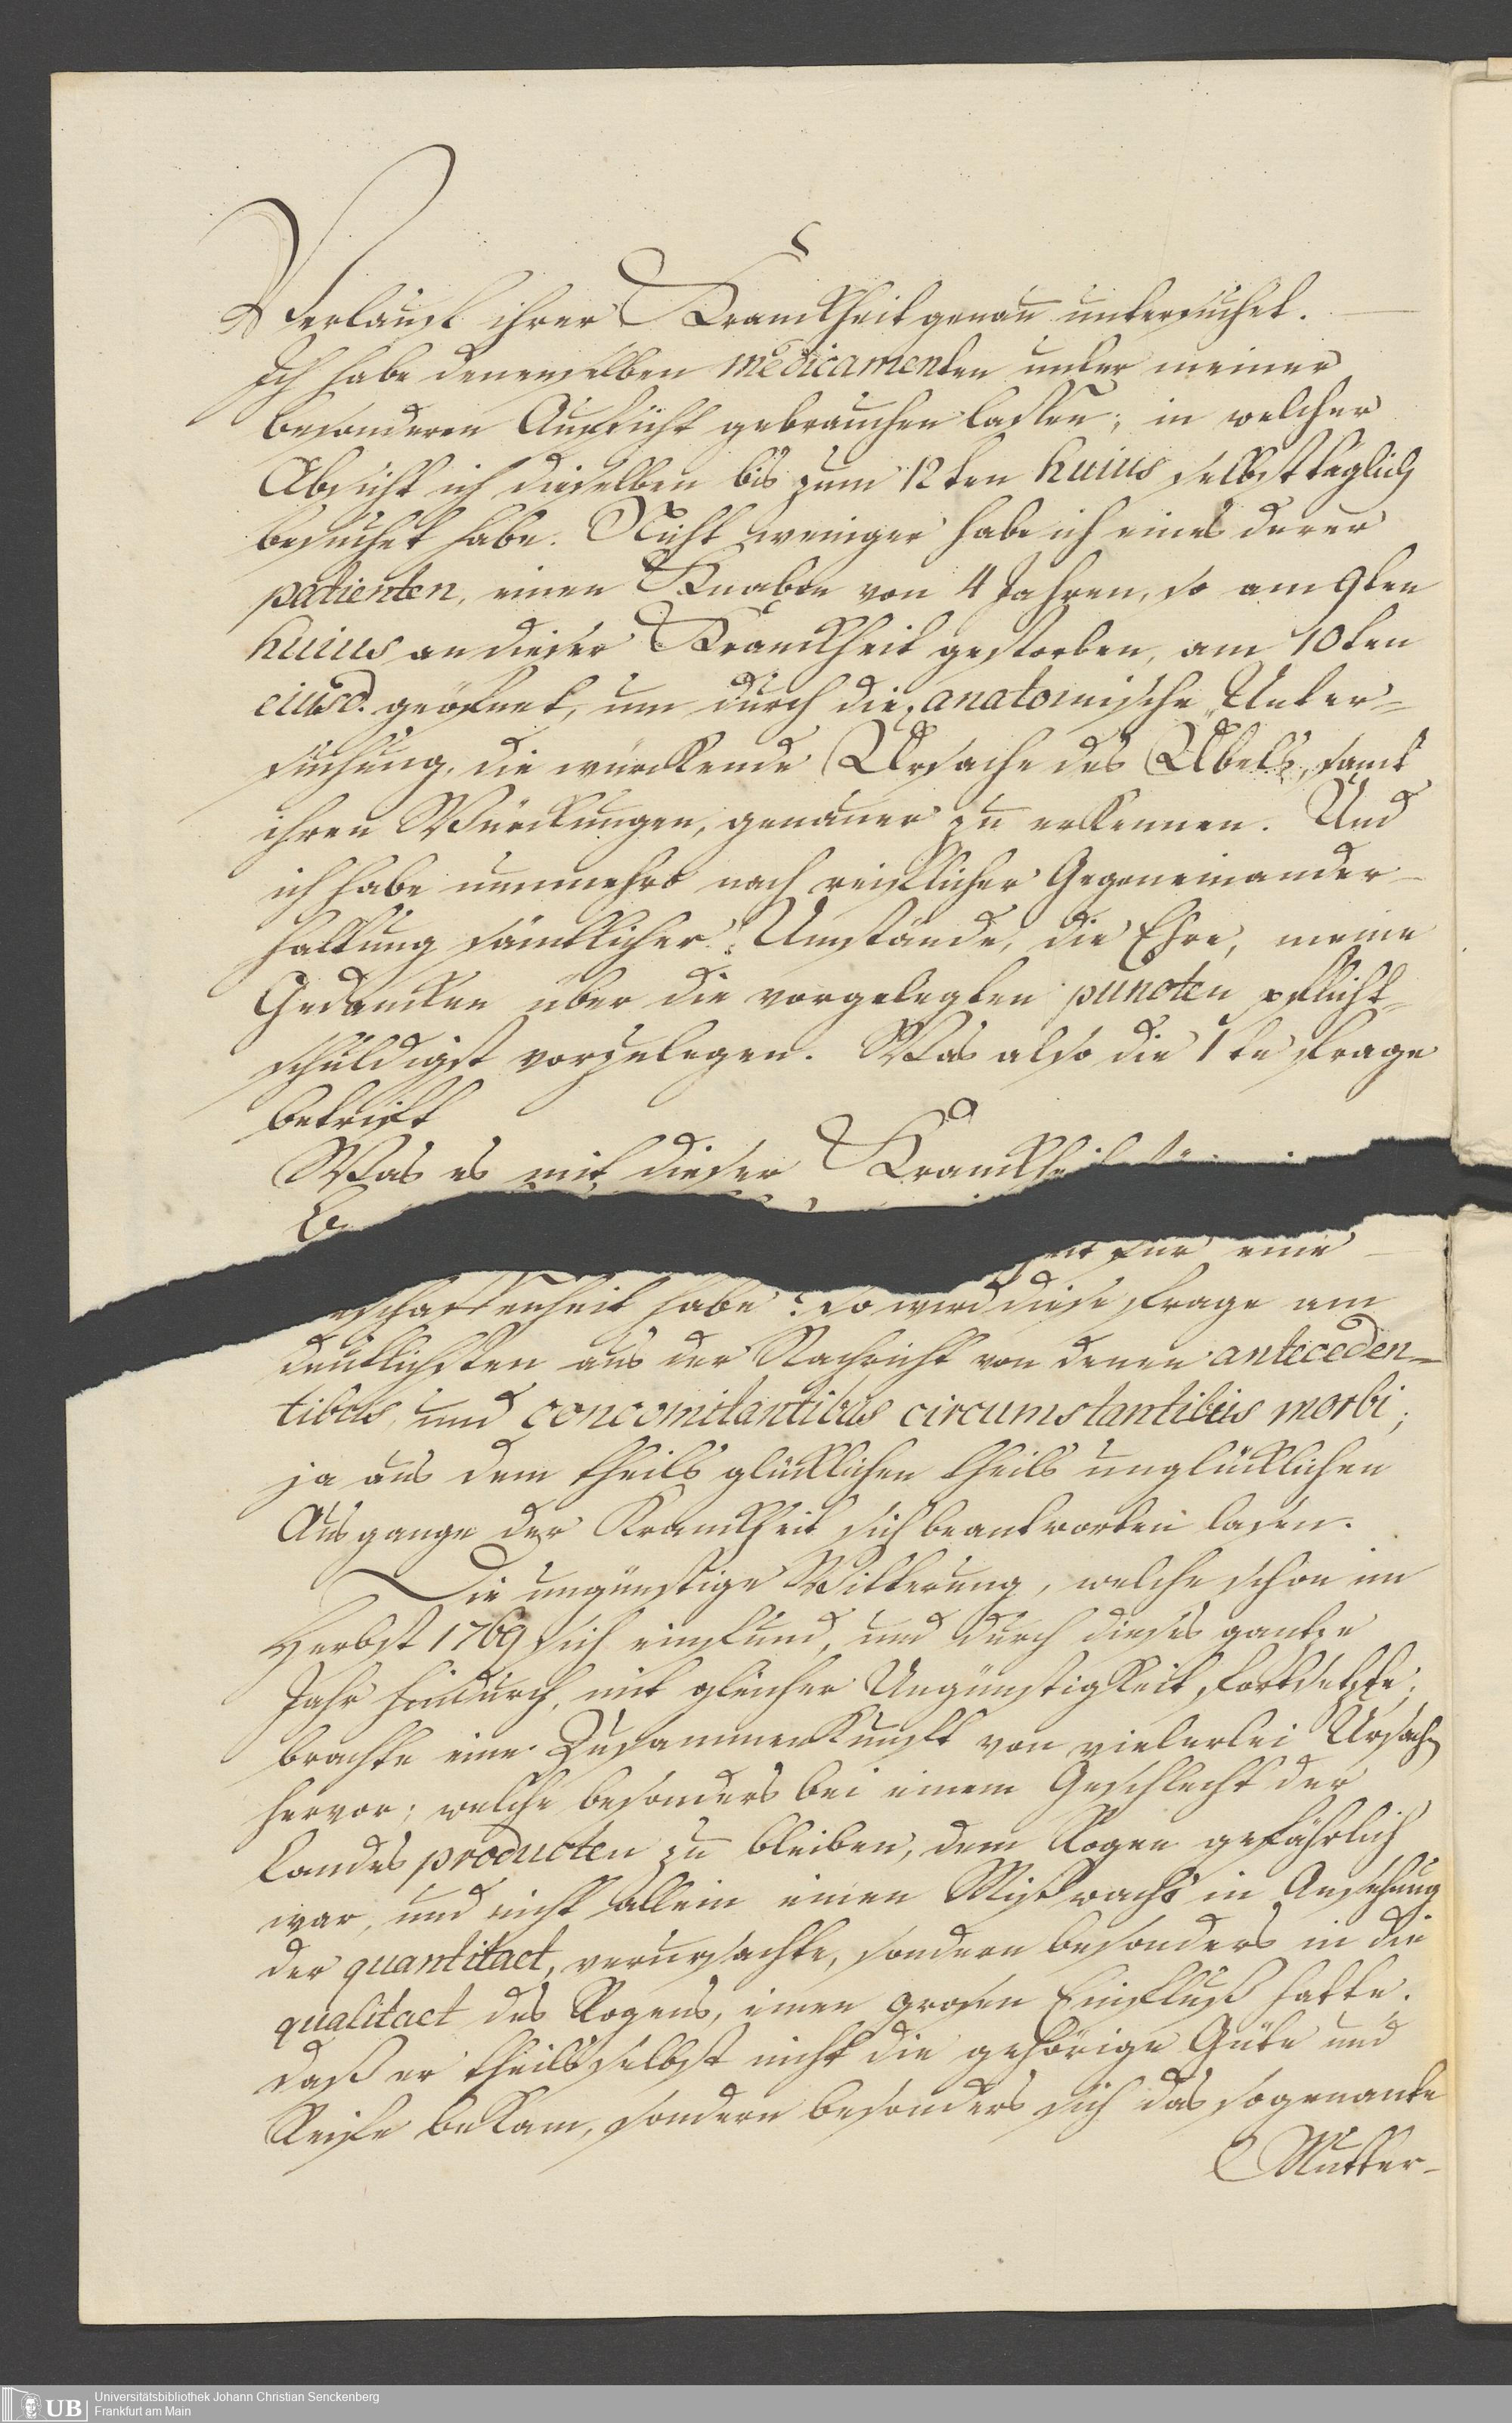 Verlauf ihrer Kranckheit genau untersuchet.
Ich habe denenselben medicamenten unter meiner
besonderen Aufsicht gebrauchen lassen; in welcher
Absicht ich dieselben bis zum 12ten huius selbst täglich
besuchet habe. Nicht weniger habe ich eines derer
patienten, einen Knaben von 4 Jahren, so am 9ten
huius an dieser Kranckheit gestorben, am 10ten
eiusd. geöfnet, um durch die anatomische Unter-
suchung, die würckende Ursache des Übels, samt
ihren Würckungen, genauer zu erkennen. Und
ich habe nunmehro nach reiflicher Gegeneinander-
haltung sämtlicher Umstände, die Ehre, meine
Gedancken über die vorgelegten puncten pflicht-
schuldigst vorzulegen. Was also die 1te Frage
betrift
Was es mit dieser Kranckheit
für eine
schaffenheit habe? so wird diese Frage am
deutlichsten aus der Nachricht von denen anteceden-
tibus und concomitantibus circumstantibus morbi;
ja aus dem theils glücklichen theils unglücklichen
Ausgange der Kranckheit sich beantworten lasen.
Die ungünstige Witterung, welche schon im
Herbst 1769 sich einfund, und durch dieses gantze
Jahr hindurch, mit gleicher Ungünstigkeit fortsetzte;
brachte eine Zusammenkunft von vielerlei Ursach
hervor; welche besonders bei einem Geschlecht der
Landes producten zu bleiben, dem Rogen gefährlich
war, und nicht allein einen Mißwachs in Ansehung
der quantitaet, verursachte, sondern besonders in die
qualitaet des Rogens, einen grosen Einfluß hatte.
daß er theils selbst nicht die gehörige Güte und
Reife bekam, sondern besonders sich das sogenante
Mutter-
UB
Universitätsbibliothek Johann Christian Senckenberg
Frankfurt am Main